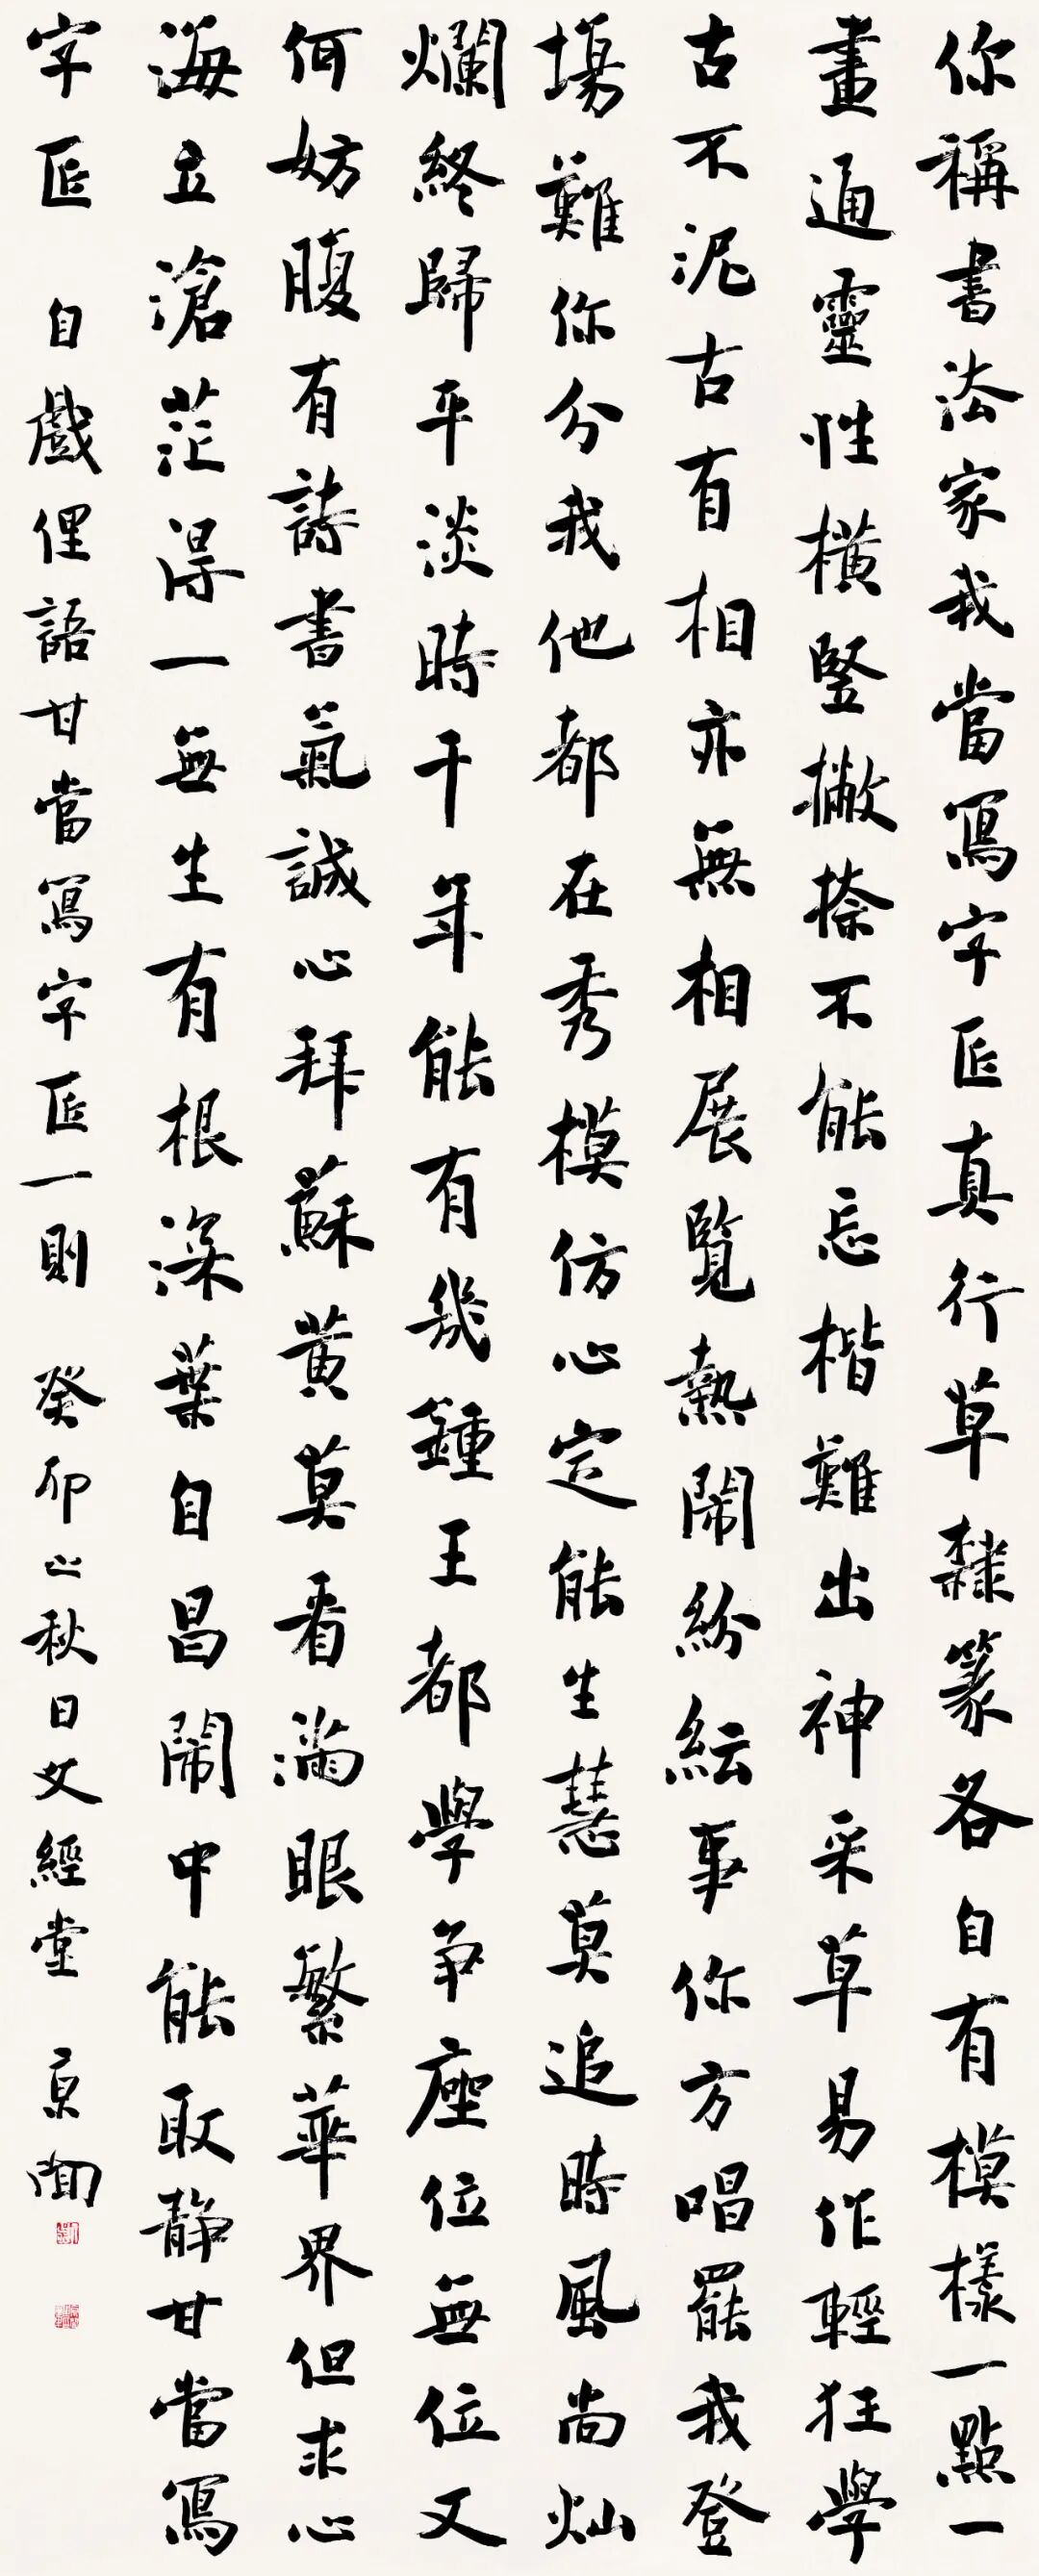 你稱書法家我當寫字匠真行草隸篆各自有模樣一點一
畫通靈性橫竪撇捺不能忘楷難出神采草易作輕狂學
古不泥古有相亦無相展覽熱鬧紛紜事你方唱罷我登
場難你分我他都在秀模仿心定能生慧莫追時風尚灿
爛終歸平淡時千年能有幾鍾王都學爭座位無位又
何妨腹有詩書氣誠心拜蘇黃莫看滿眼繁華界但求心
海立滄茫得一無生有根深葉自昌鬧中能取靜甘當寫
字匠 自戲俚語甘當寫字匠一則 癸卯之秋日文經堂